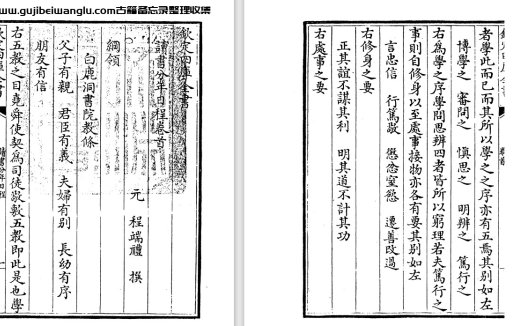 www.gujibeiwanglu.com古籍备忘录整理收集
欽定四庫全書
讀書分年日程卷首
元 程端禮 撰
綱領
白鹿洞書院教條
父子有親 君臣有義 夫婦有别 長幼有序
朋友有信
右五教之目堯舜使契爲司徒敬敷五教即此是也學
讀書分年日程
者學此而已而其所以學之之序亦有五焉其别如左
博學之 審問之 慎思之 明辨之 篤行之
右為學之序學問思辨四者皆所以窮理若夫篤行之
事則自修身以至處事接物亦各有要其别如左
言忠信 行篤敬 懲忿窒慾 遷善改過
右修身之要
正其誼不謀其利 明其道不計其功
右處事之要